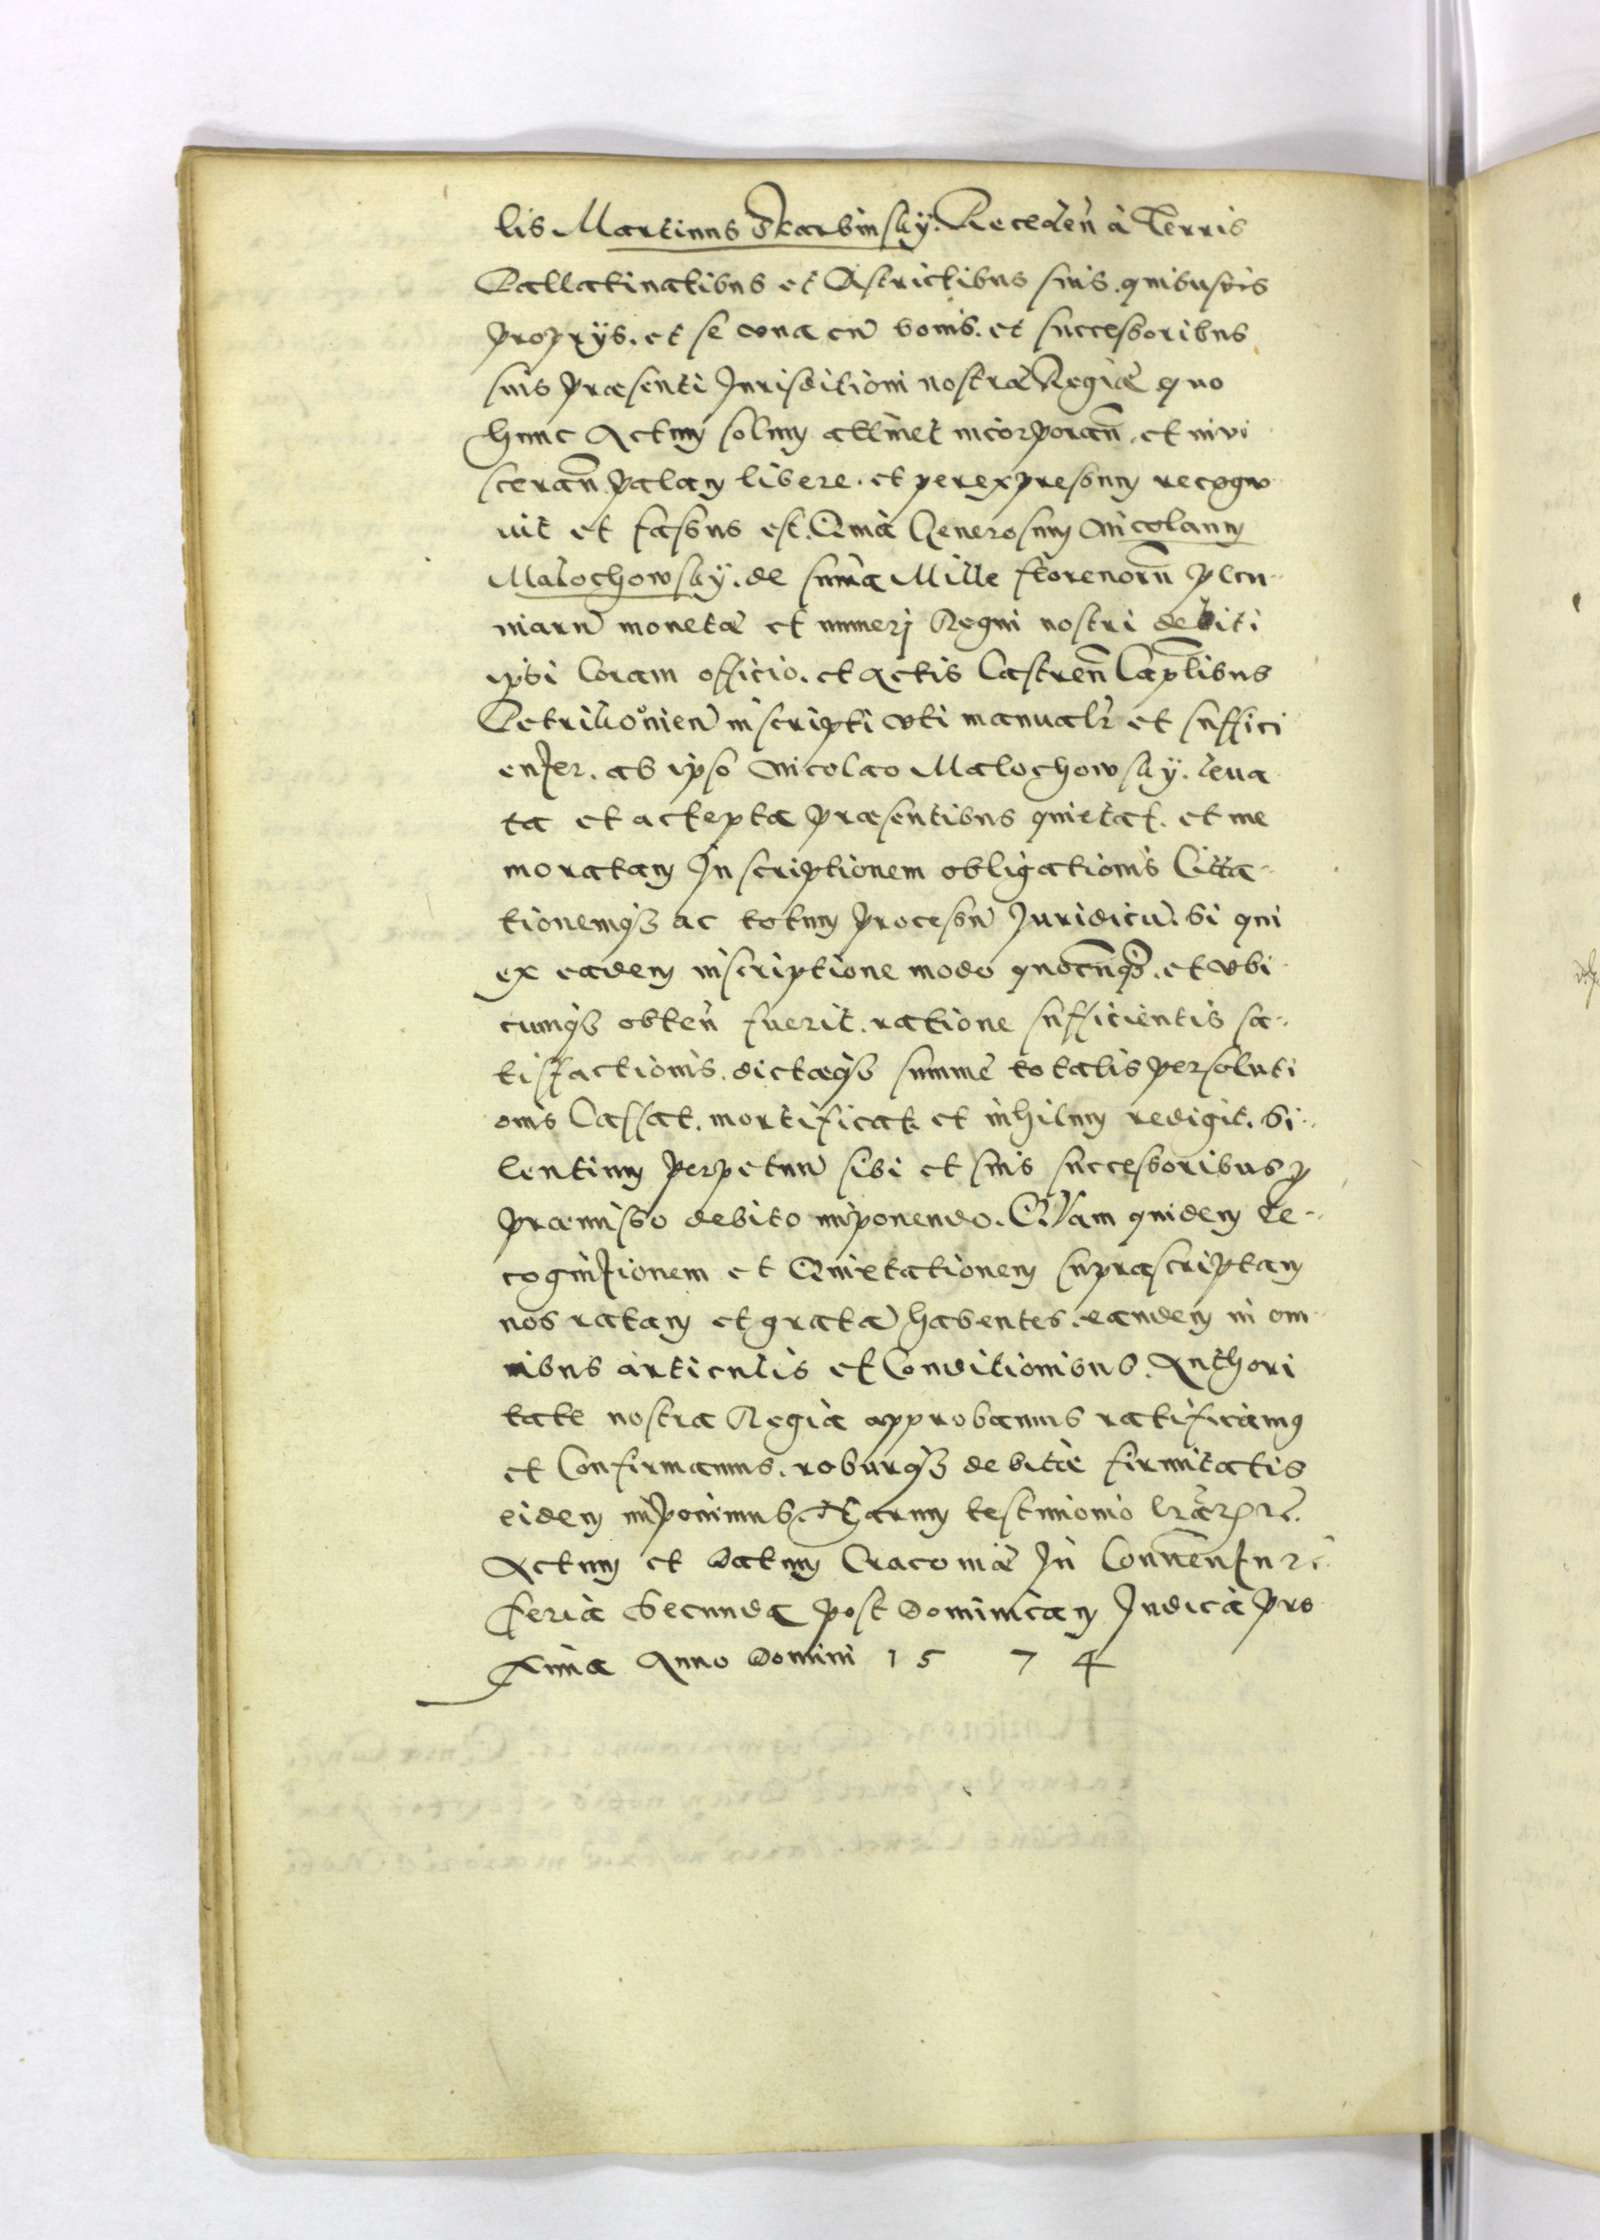 lis Martinus Skarbinsky. Receden̄ à Terris
Pallatinatibus et Districtibus suis. quibusvis
proprys. et se vna cū bonis. et successoribus
suis præsenti Jurisditioni nostræ Regiæ quo
hunc Actum solum attinet incorporan̄. et invi
sceran̄ palam libere. et per expressum recogno
uit et fassus est. Quia Generosum Nicolaum
Malochowsky. de suma Mille florenorū pecu-
niarū monetæ et numerj Regni nostri debiti
ipsi Coram officio. et Actis Castren̄ Cap̄libus
Petricouien̄ inscripti vti manualr̄ et suffici
enter. ab ipso Nicolao Malochowsky. leua
ta et accepta præsentibus quietat. et me
moratam Inscriptionem obligationis Citta-
tionemq3 ac totum processū Juridicū. Si qui
ex eadem inscriptione modo quocūq3. et vbi
cumq3 obten̄ fuerit. ratione sufficientis sa-
tisfactionis. dictæq3 summe totalis persoluti
onis Cassat. mortificat. et in nihilum redigit. Si-
lentium perpetuū sibi et suis successoribus p
præmisso debito imponendo. Quam quidem Re-
cognitionem et Quietationem supra scriptam
nos ratam et gratā habentes. eandem in om
nibus articulis et Conditionibus. Authori
tate nostra Regia approbamus ratificamq
et Confirmamus. roburq3 debitæ firmitatis
eidem imponimus. Harum testimonio lr̄ar̄
Actum et Datum Cracoviæ In Conuentu
feria Secunda post Dominicam Judica pro
xima Anno Domini 1574